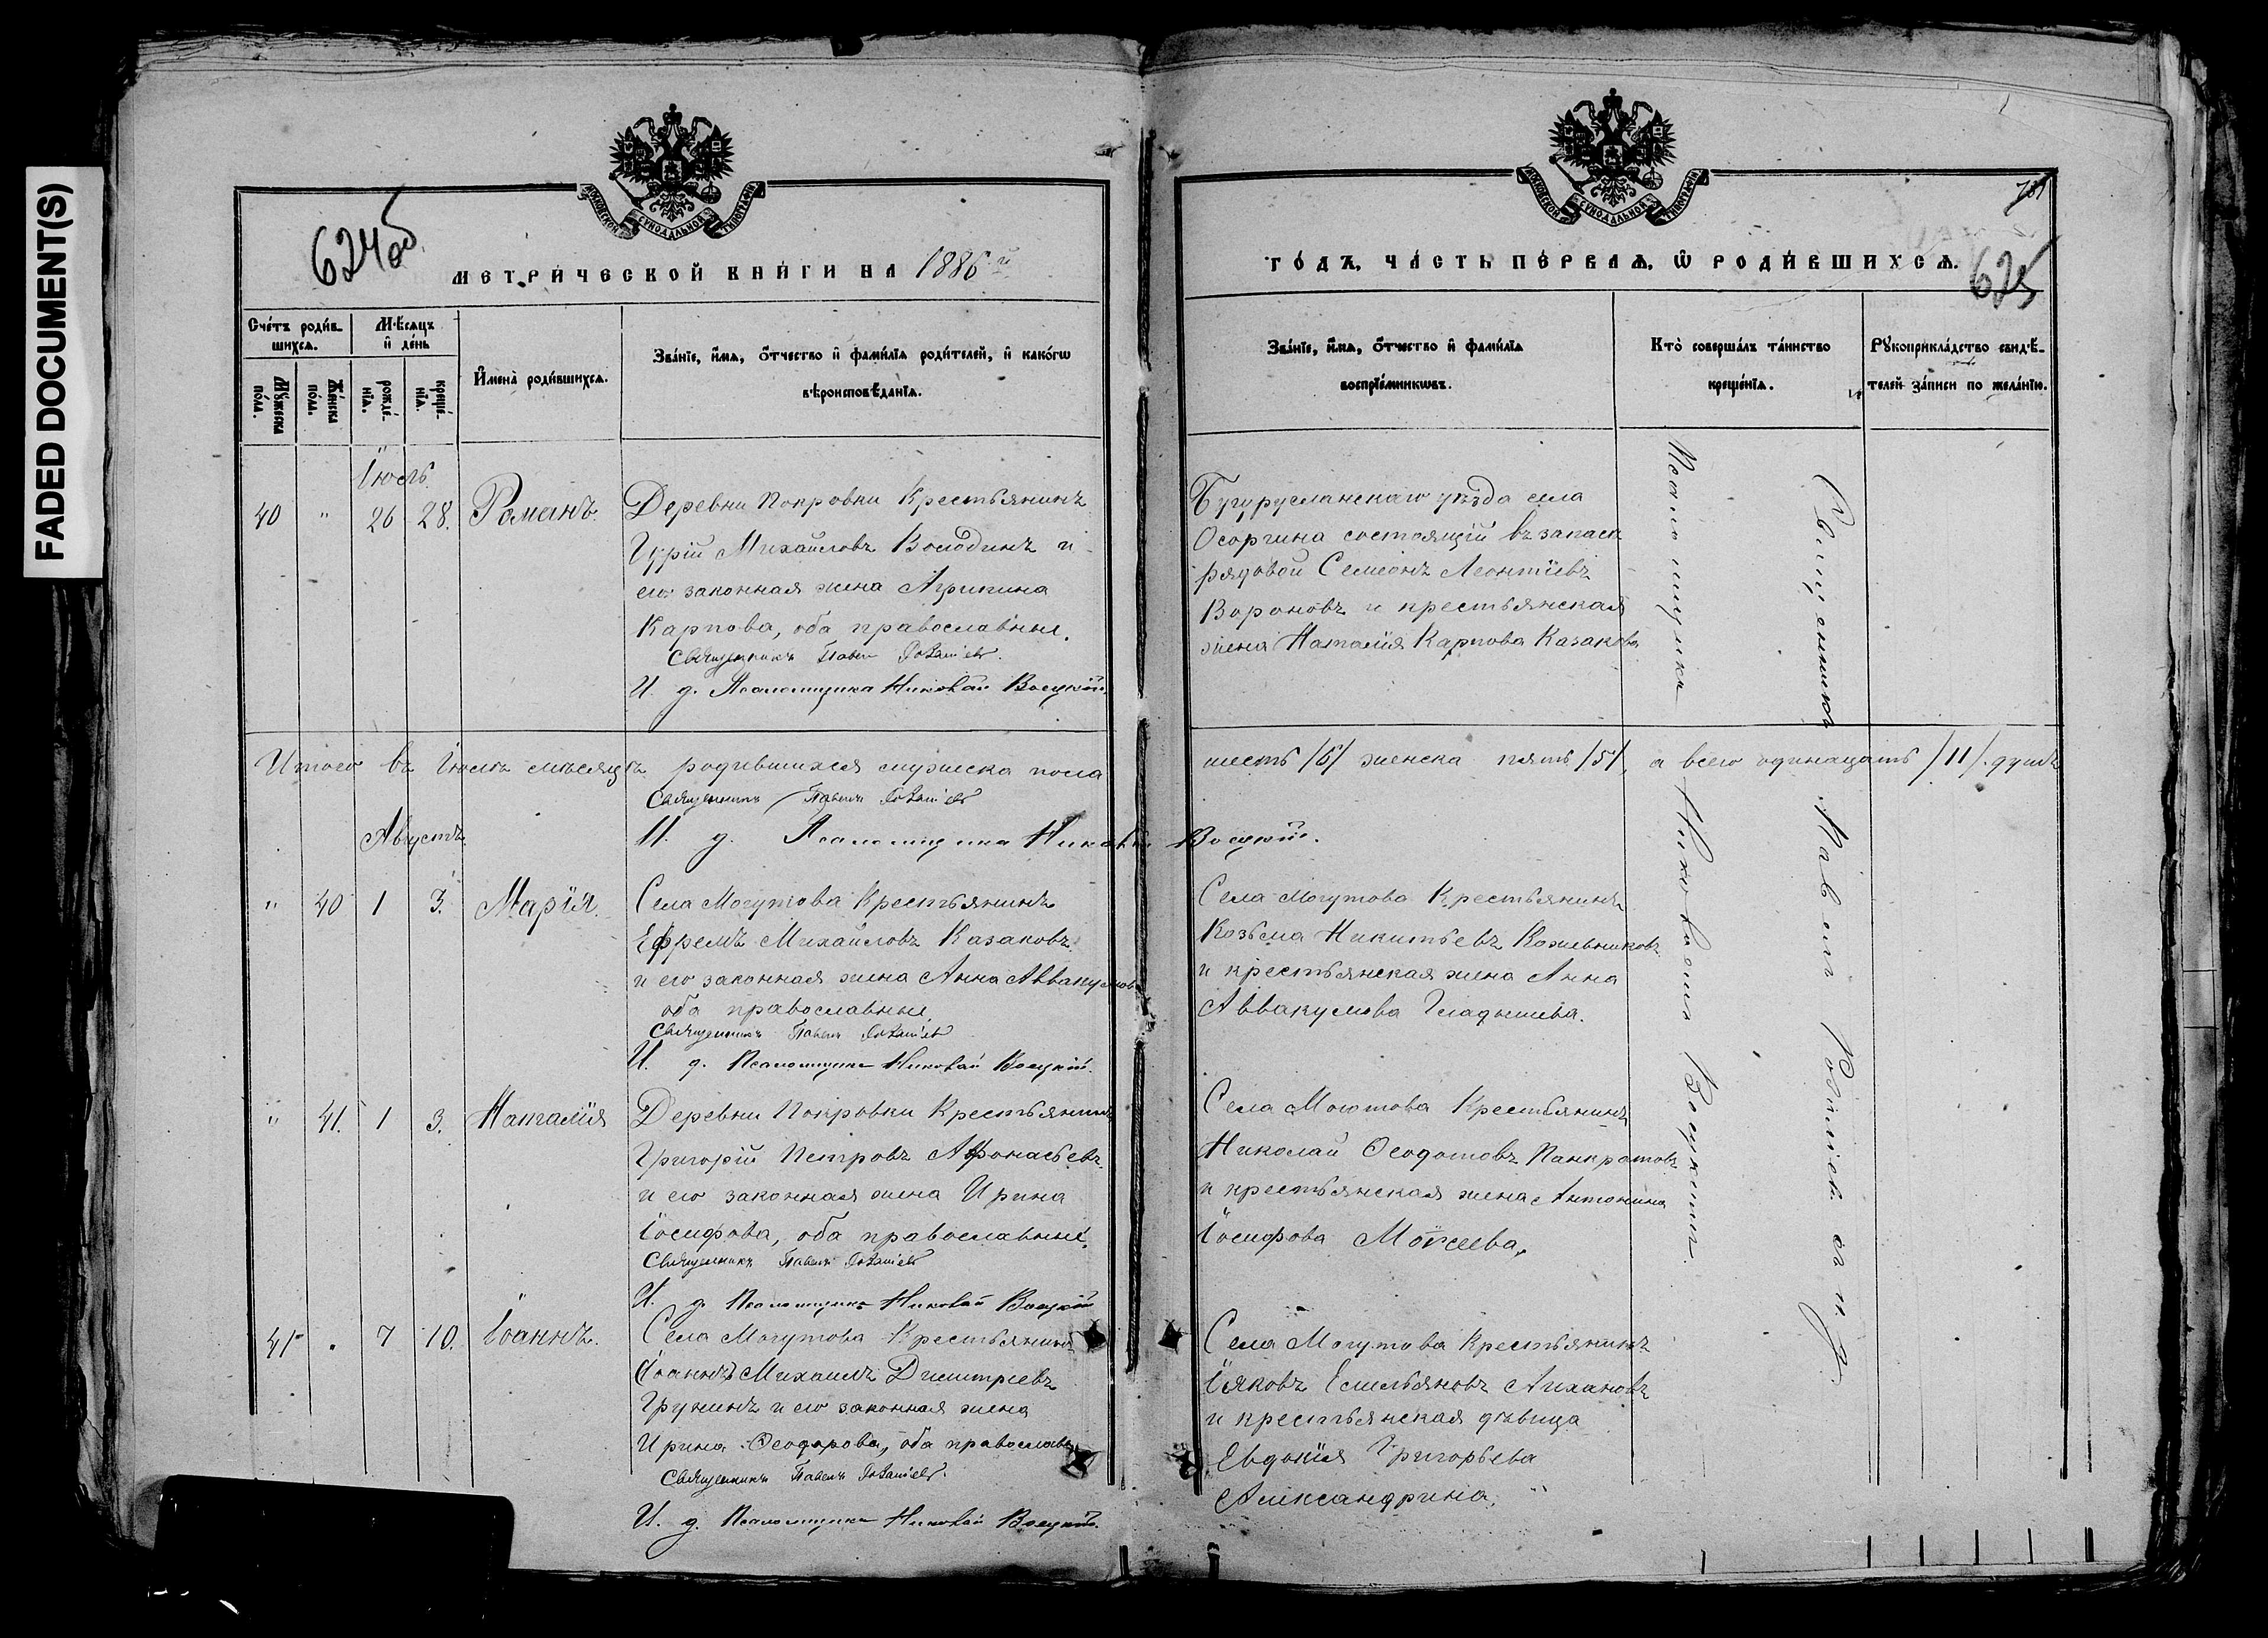 FADED DOCUMENT(S)
624об
МЕТРИЧЕСКОЙ КНИГИ НА 1886й
Счетъ родив-
шихся.
Мужеска
пола.
Женска
пола.
Мѣсяцъ
и день
рожде-
нія.
креще-
нія.
Имена родившихся.
Званіе, имя, отчество и фамилія родителей, и какогѡ
вѣроисповѣданія.
Іюль
40 " 26 28. Романъ.
Деревни Покровки Крестьянинъ
Гурій Михайловъ Володинъ и
его законная жена Агрипина
Карпова, оба православные.
Священникъ Павелъ
И. д. Псаломщика Николай Воецкій.
Итого въ Іюлѣ мѣсяцѣ родившихся мужеска пола
Священникъ Павелъ
Августъ
И. д. Псаломщика Николай Воецкій.
" 40 1 3. Марія.
Села Могутова Крестьянинъ
Ефремъ Михайловъ Казаковъ
и его законная жена Анна Аввакумова
оба православные.
Священникъ Павелъ
И. д. Псаломщика Николай Воецкій.
" 41. 1 3. Наталія
Деревни Покровки Крестьянинъ
Григорій Петровъ Афонасьевъ
и его законная жена Ирина
Іосифова, оба православные.
Священникъ Павелъ
И. д. Псаломщика Николай Воецкій
41 . 7 10. Іоаннъ.
Села Могутова Крестьянинъ
Іоаннъ Михаилъ Димитріевъ
Грунинъ и его законная жена
Ирина Ѳеодорова, оба православн
Священникъ Павелъ
И. д. Псаломщика Николай Воецкій.
МОСКОВСКОЙ СѴНОДАЛЬНОЙ ТИПОГРАФІИ
625
ГОДЪ, ЧАСТЬ ПЕРВАЯ, Ѡ РОДИВШИХСЯ.
Званіе, имя, отчество и фамилія
воспріемникѡвъ.
Кто совершалъ таинство
крещенія.
Рукоприкладство свидѣ-
телей записи по желанію.
Бугурусланскаго уѣзда села
Осоргина состоящій въ запасѣ
рядовой Семеонъ Леонтіевъ
Вороновъ и крестьянская
жена Наталія Карпова Казакова
шесть /6/ женска пять /5/, а всего одинацать /11/. душъ
Села Могутова Крестьянинъ
Козьма Никитьевъ Кожевниковъ
и крестьянская жена Анна
Аввакумова Гладышева.
Села Могутова Крестьянинъ
Николай Ѳеодотовъ Панкратовъ
и крестьянская жена Антонина
Іосифова Моисеева.
Села Могутова Крестьянинъ
Іяковъ Емельяновъ Лихановъ
и крестьянская дѣвица
Евдокія Григорьева
Александрина.
Священникъ Павелъ
Псаломщика Николай Воецкій.